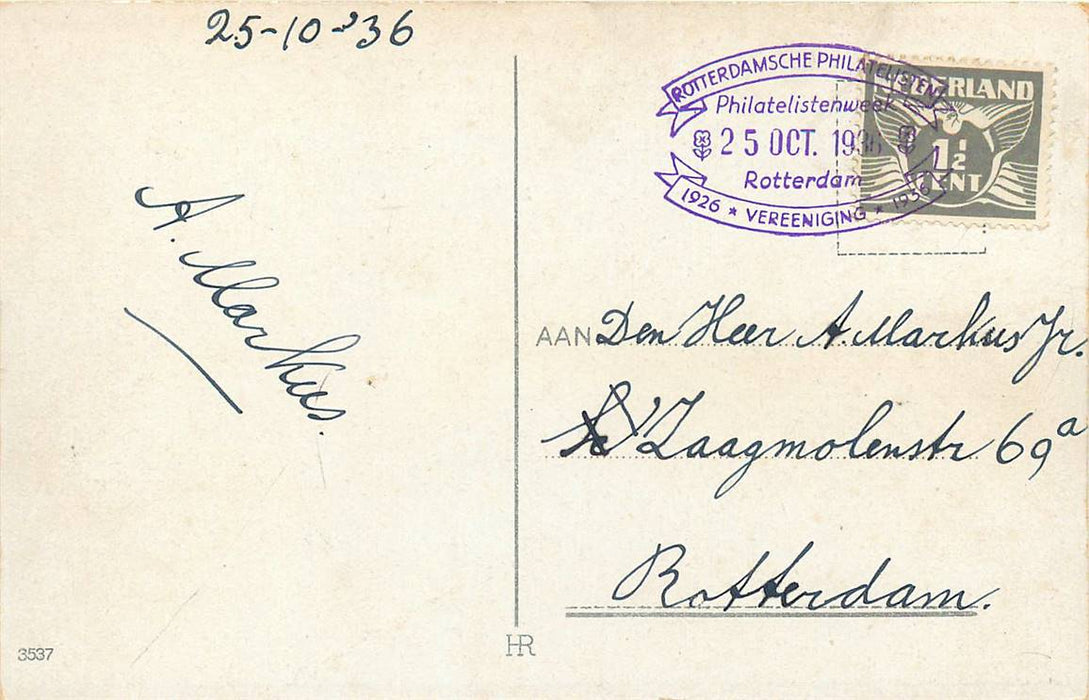 25-10-'36
ROTTERDAMSCHE PHILATELISTEN
Philatelistenweek
25 OCT. 1936
Rotterdam
1926 * VEREENIGING * 1936
NEDERLAND
1½
CENT
A. Markus.
AAN Den Heer A. Markus Jr.
Zaagmolenstr 69a
Rotterdam.
3537
HR